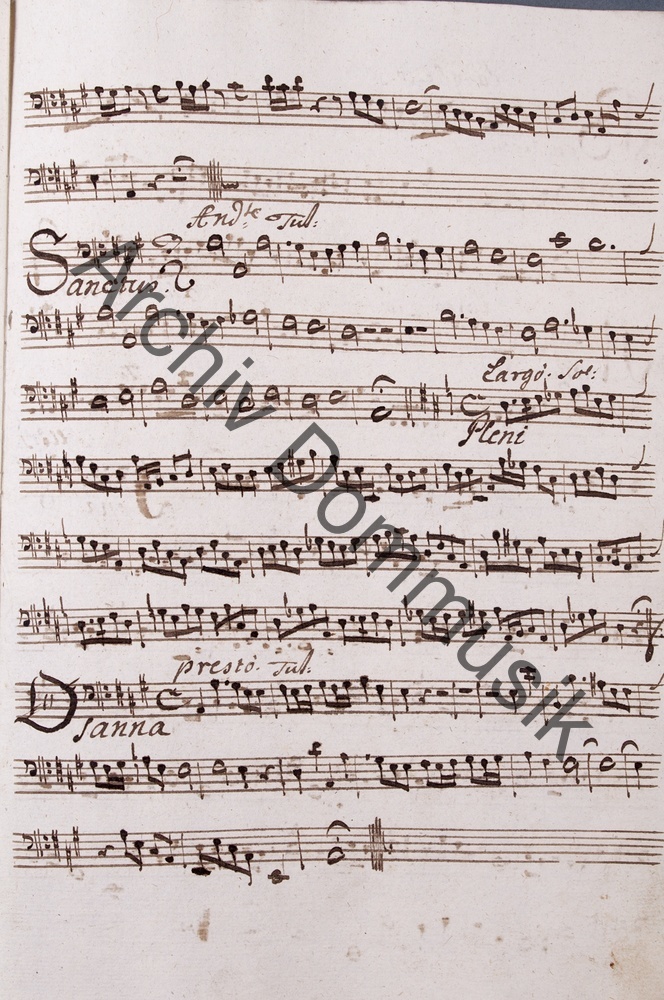 And.te Tut:
Sanctus.
Largo. Sol:
Pleni
presto. Tut:
Osanna
Archiv Dommusik